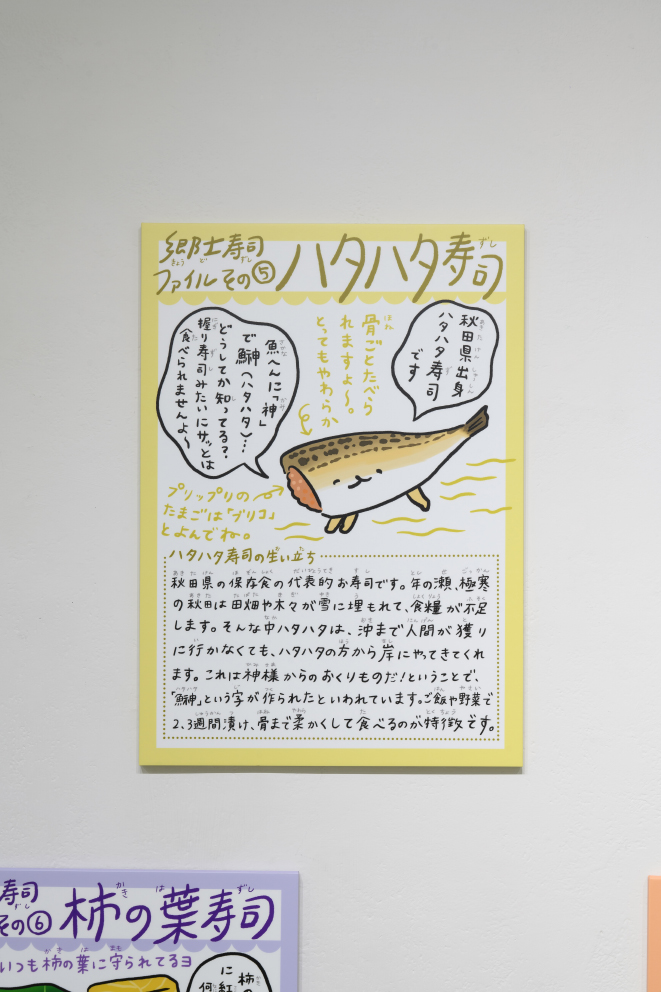 郷土寿司
ファイルその⑤
ハタハタ寿司
秋田県出身
ハタハタ寿司
です
骨ごとたべら
れますよ〜。
とってもやわらか
魚へんに「神」
で鰰(ハタハタ)…
どうしてか知ってる?
握り寿司みたいにサッとは
食べられませんよ〜
プリップリの
たまごは「ブリコ」
とよんでね。
ハタハタ寿司の生い立ち
秋田県の保存食の代表的お寿司です。年の瀬、極寒
の秋田は田畑や木々が雪に埋もれて、食糧が不足
します。そんな中ハタハタは、沖まで人間が獲り
に行かなくても、ハタハタの方から岸にやってきてくれ
ます。これは神様からのおくりものだ!ということで、
「鰰」という字が作られたといわれています。ご飯や野菜で
2、3週間漬け、骨まで柔かくして食べるのが特徴です。
寿司
その⑥
柿の葉寿司
いつも柿の葉に守られてるヨ
柿の
に紅
何